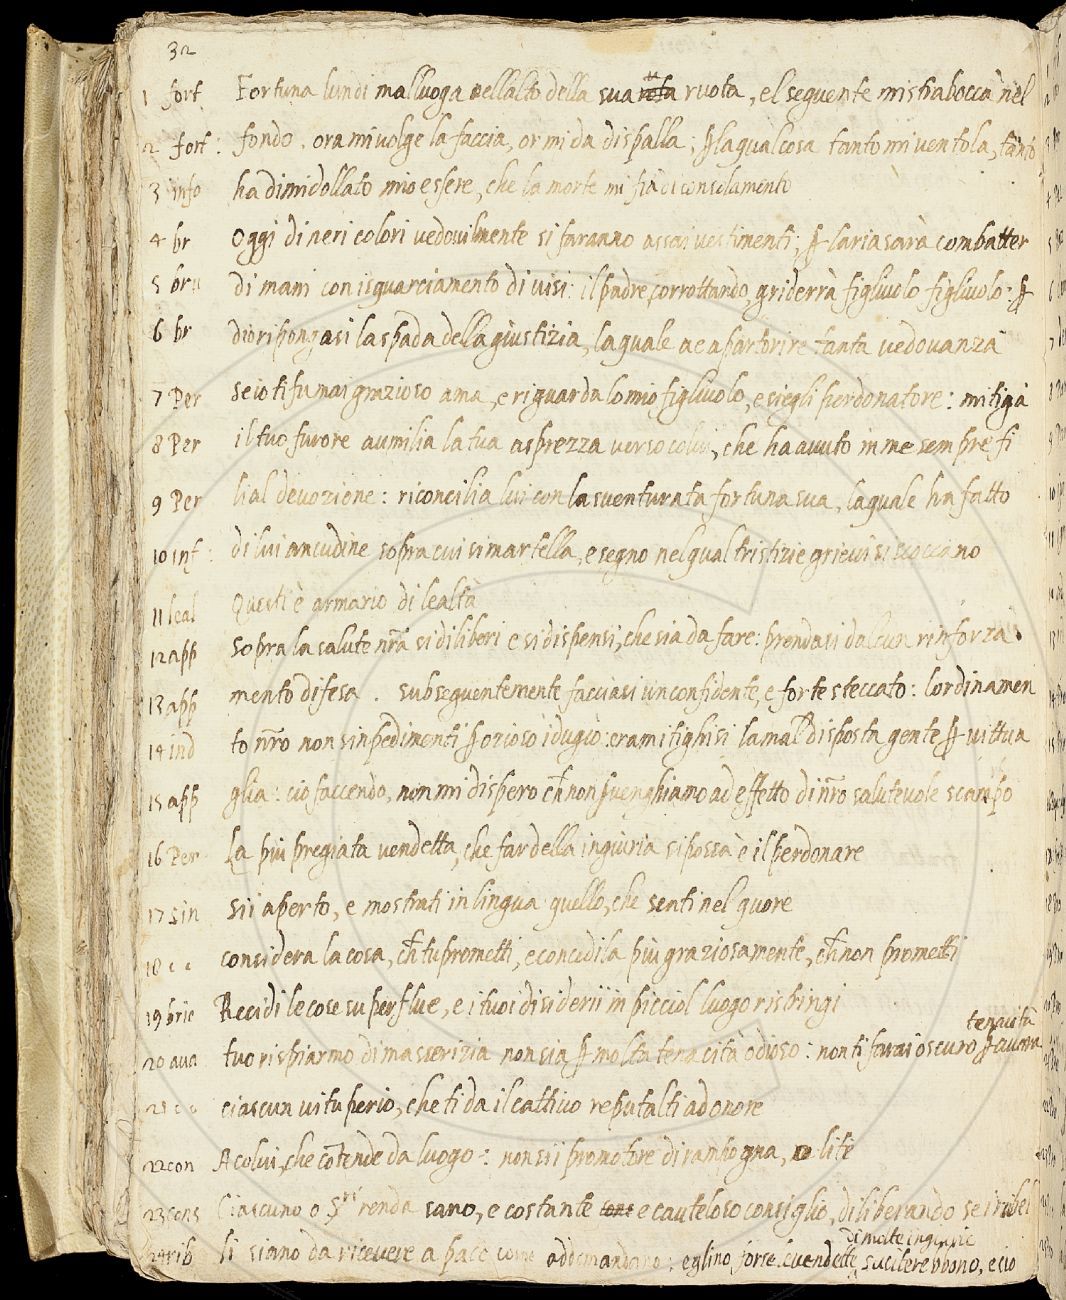 32
1 fort Fortuna lundi malluoga nellalto della sua rota ruota, el seguente mi strabocca nel
2 fort: fondo. ora mi volge la faccia, or mi da di spalla; ꝑ la qual cosa tanto mi ventola, tanto
3 info ha dimidollato mio essere, che la morte mi fia di consolamento
4 br Oggi di neri colori vedovilmente si faranno assai vestimenti; ꝑ laria sarà combatter
5 bru di mani con isquarciamento di visi: il padre corrottando, griderrà figliuolo figliuolo: ꝑ
6 br dio ripongasi la spada della giustizia, la quale ae a partorire tanta vedovanza
7 Per se io ti fu mai grazioso ama, e riguarda lo mio figliuolo, e siegli perdonatore: mitiga
8 Per il tuo furore aumilia la tua asprezza verso colui, che ha avuto in me sempre fi
9 Per lial devozione: riconcilia lui con la sventurata fortuna sua, la quale ha fatto
10 inf: di lui ancudine sopra cui si martella, e segno nel qual tristizie grievi si scoccano
11 leal Questi è armario di lealtà
12 app Sopra la salute nr̃a si diliberi e si dispensi, che sia da fare: prendasi dalcun rinforza
13 app mento difesa. Subseguentemente facciasi un confidente, e forte steccato: lordinamen
14 ind to nr̃o non sinpedimenti ꝑ ozioso idugio: era mitighisi la mal disposta gente ꝑ vittua
15 app glia: ciò faccendo, non mi dispero ch̃ non ꝑvenghiamo ad effetto di nr̃o salutevole scampo
16 Per La più pregiata vendetta, che far della ingiuria si possa è il perdonare
17 sin Sii aperto, e mostrati in lingua quello, che senti nel quore
18 considera la cosa, ch̃ tu prometti, e concedila più graziosamente, ch̃ non prometti
19 brie Recidi le cose superflue, e i tuoi disiderii in picciol luogo ristringi
tenacità
20 ava tuo rispiarmo di masserizia non sia ꝑ molta tenacità odioso: non ti farai oscuro ꝑ
21 ciascun vituperio, che ti da il cattivo reputalti ad onore
22 con A colui, che cõtende da luogo: non sii promotore di rampogna, o lite
23 cons Ciascuno o Sri renda sano, e costante e cauteloso consiglio, diliberando se i ribel
di molte ingiurie
24 rib li siano da ricevere a pace come addomandano: eglino forse vendette suscitere bbono, e cio